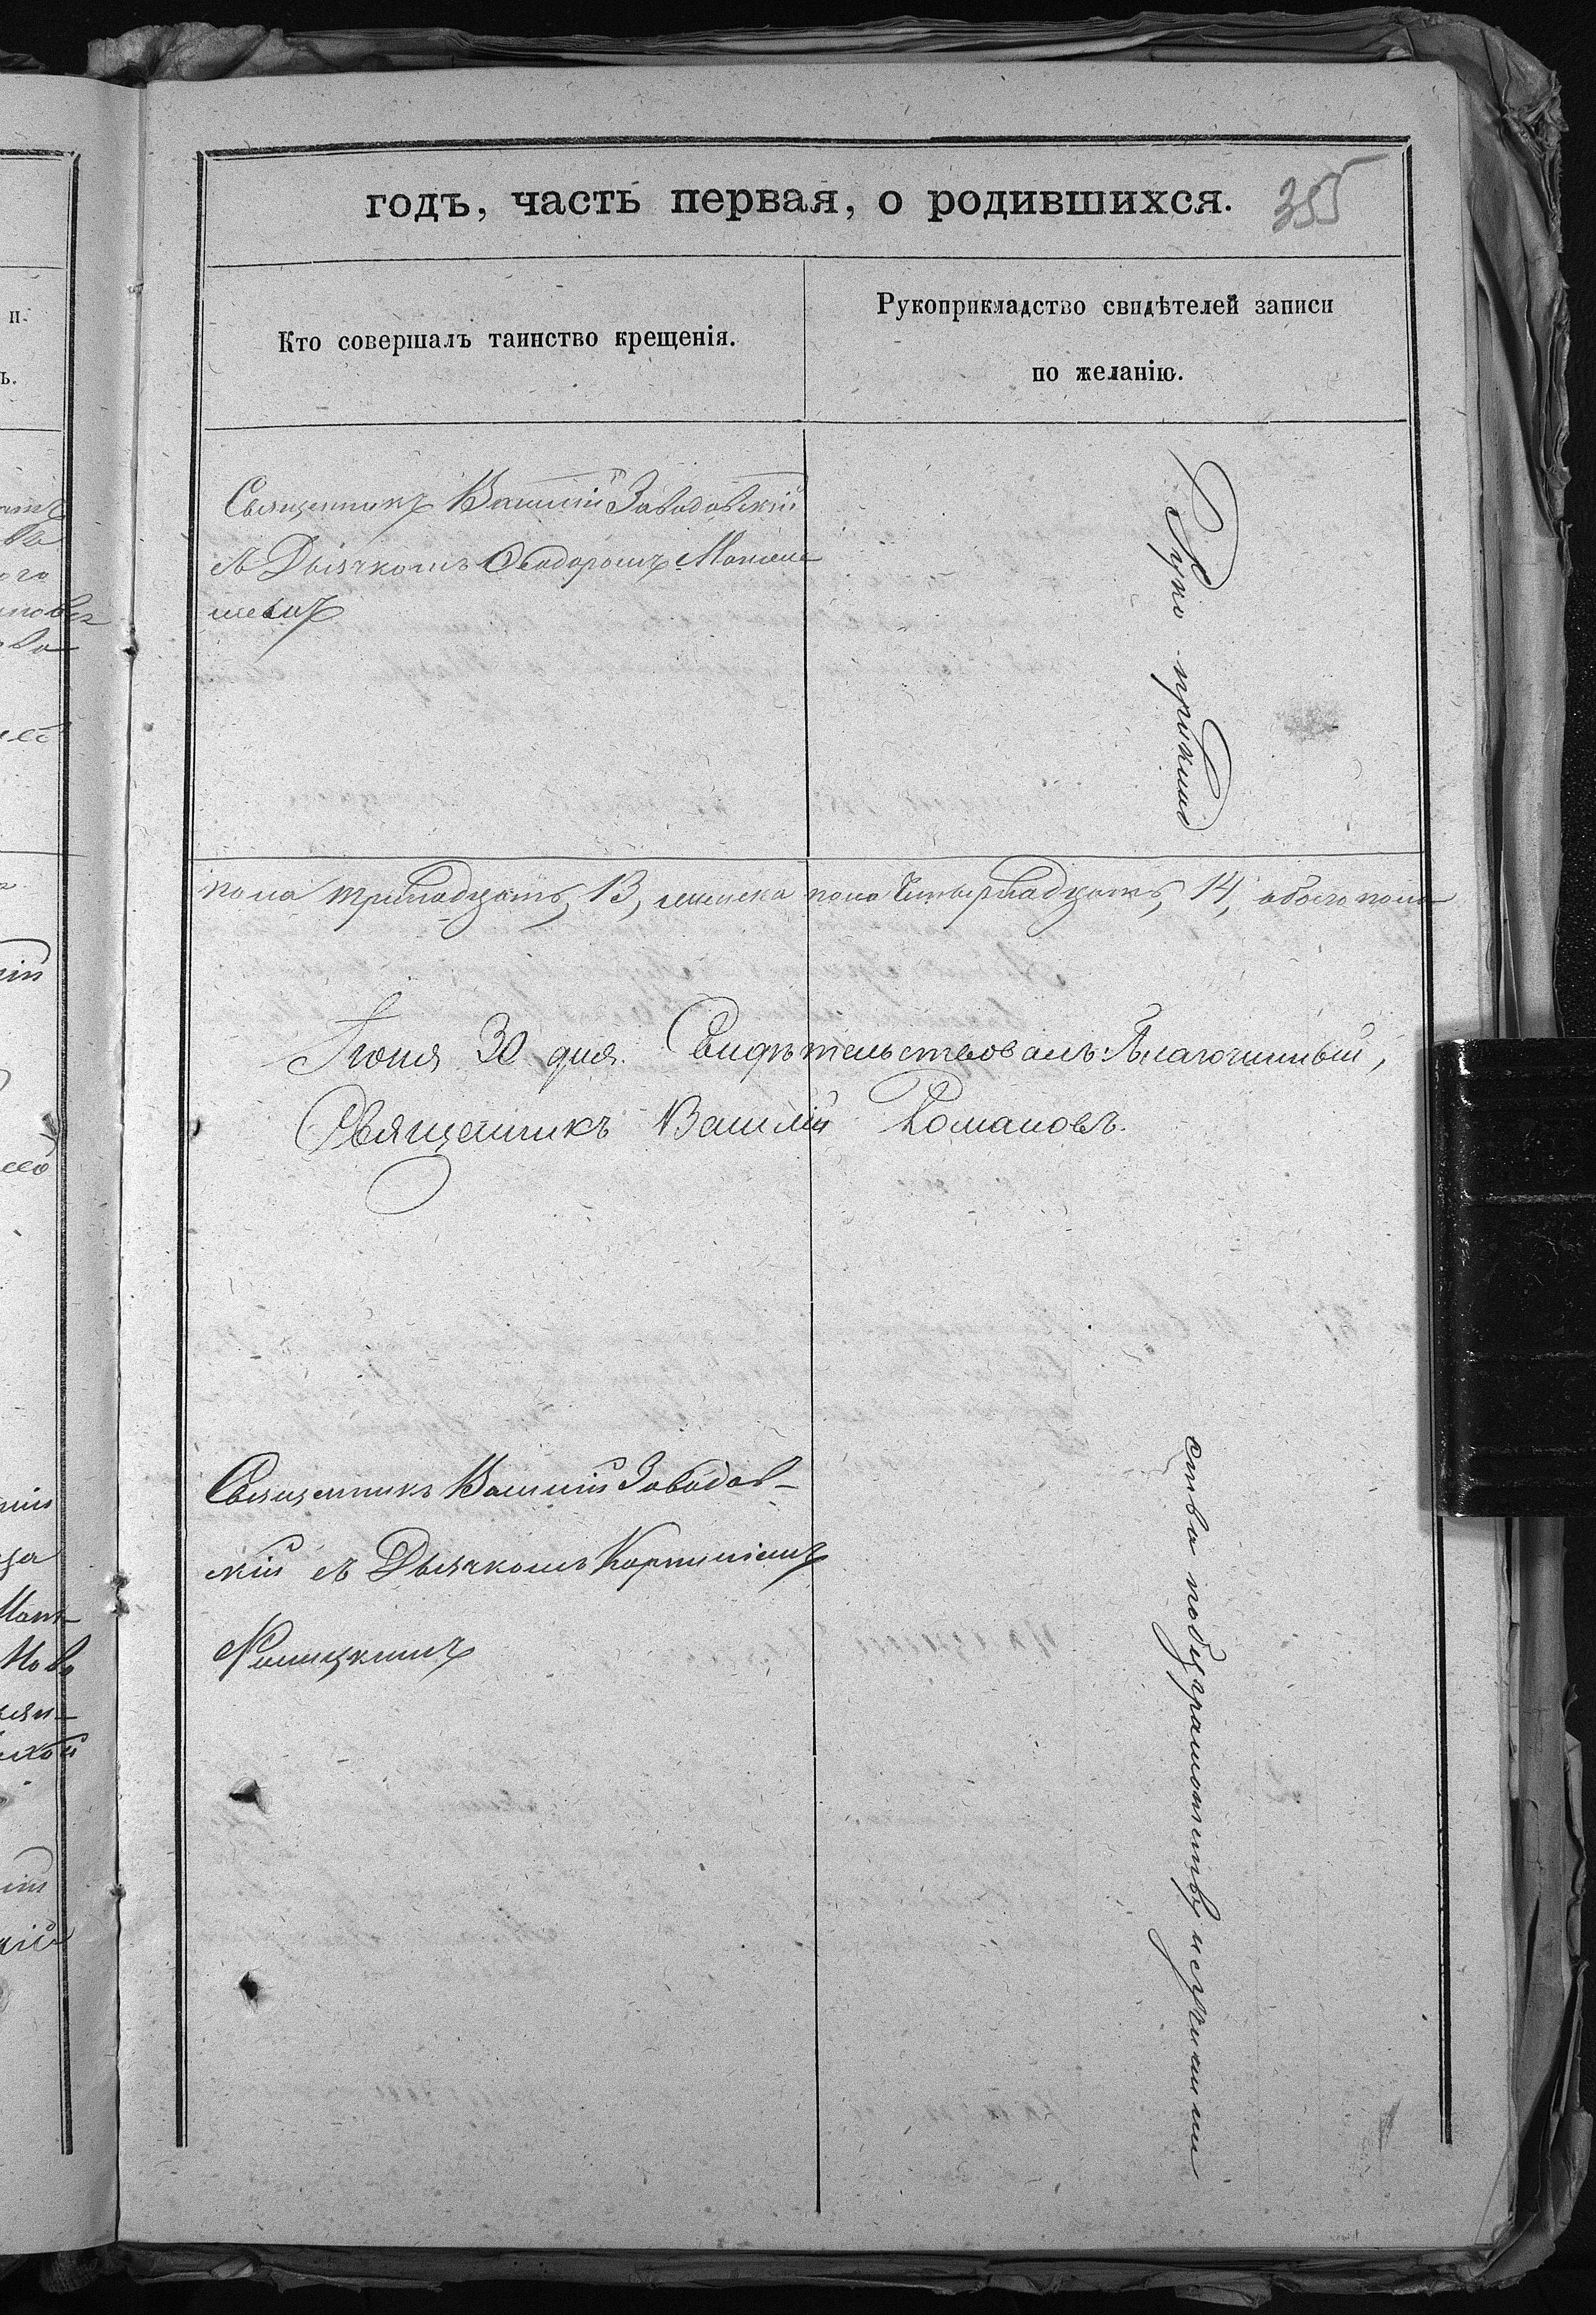 годъ, часть первая, о родившихся. 355
Кто совершалъ таинство крещенія.
Рукоприкладство свидѣтелей записи
по желанію.
Священникъ Василій Заводовскій
съ Дьячкомъ Ѳеодоромъ
Руко приклад
пола тринадцать, 13, женска пола Четырнадцать, 14, обоего пола
Іюня 30 дня. Свидѣтельствовалъ: Благочинный,
Священникъ Василій Романовъ.
Священникъ Василій Заводов-
скій съ Дьячкомъ Корниліемъ
ства по безграмотству